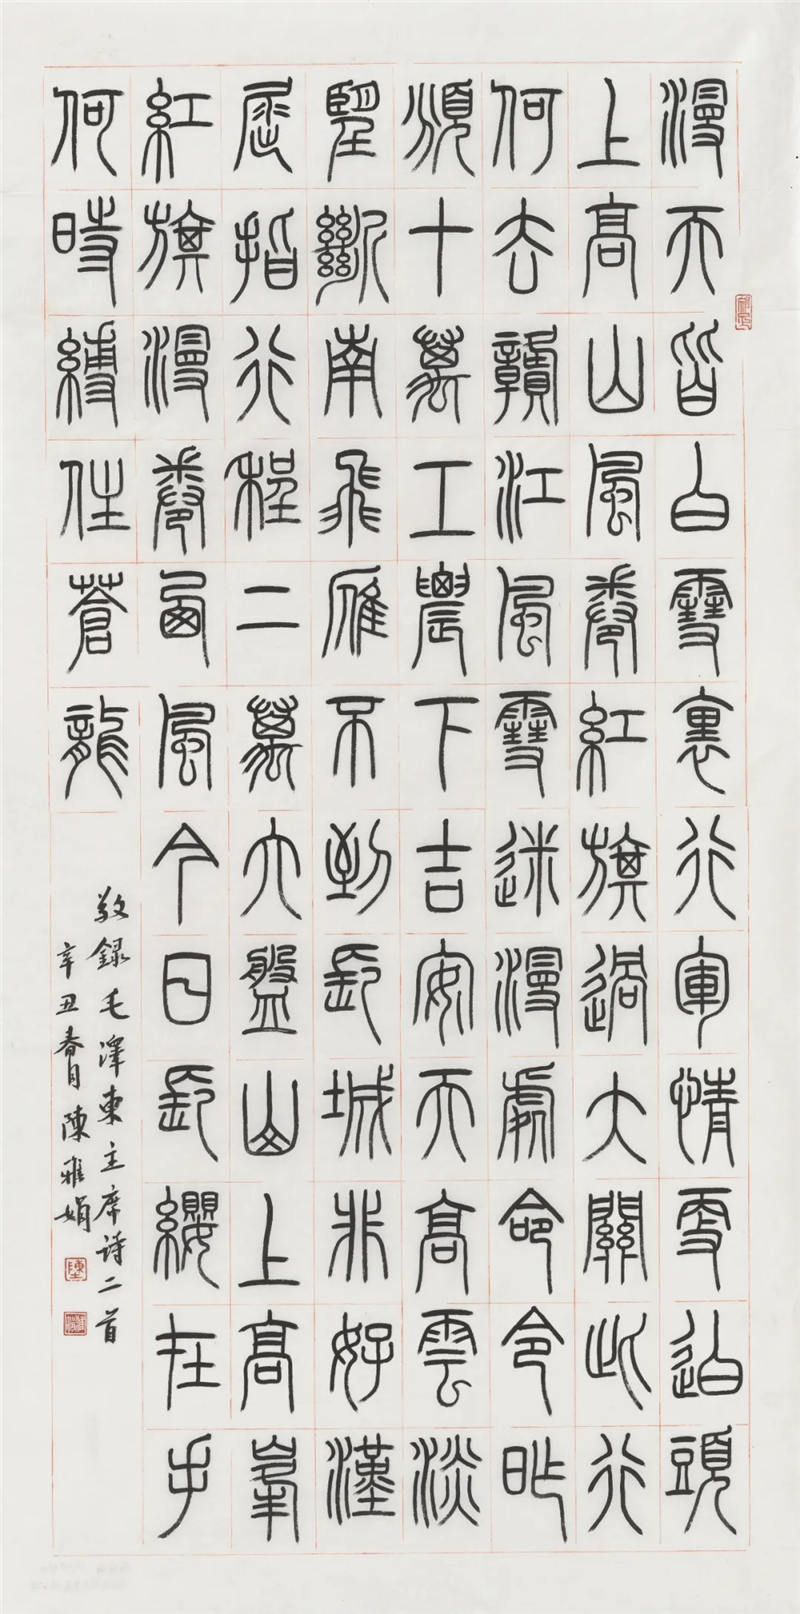 漫天皆白雪裏行軍情更迫頭
上高山風卷紅旗過大關此行
何去贛江風雪迷漫處命令昨
頒十萬工農下吉安天高雲淡
望斷南飛雁不到長城非好漢
屈指行程二萬六盤山上高峯
紅旗漫卷西風今日長纓在手
何時縛住蒼龍
敬錄毛澤東主席詩二首
辛丑春月陳雅娟